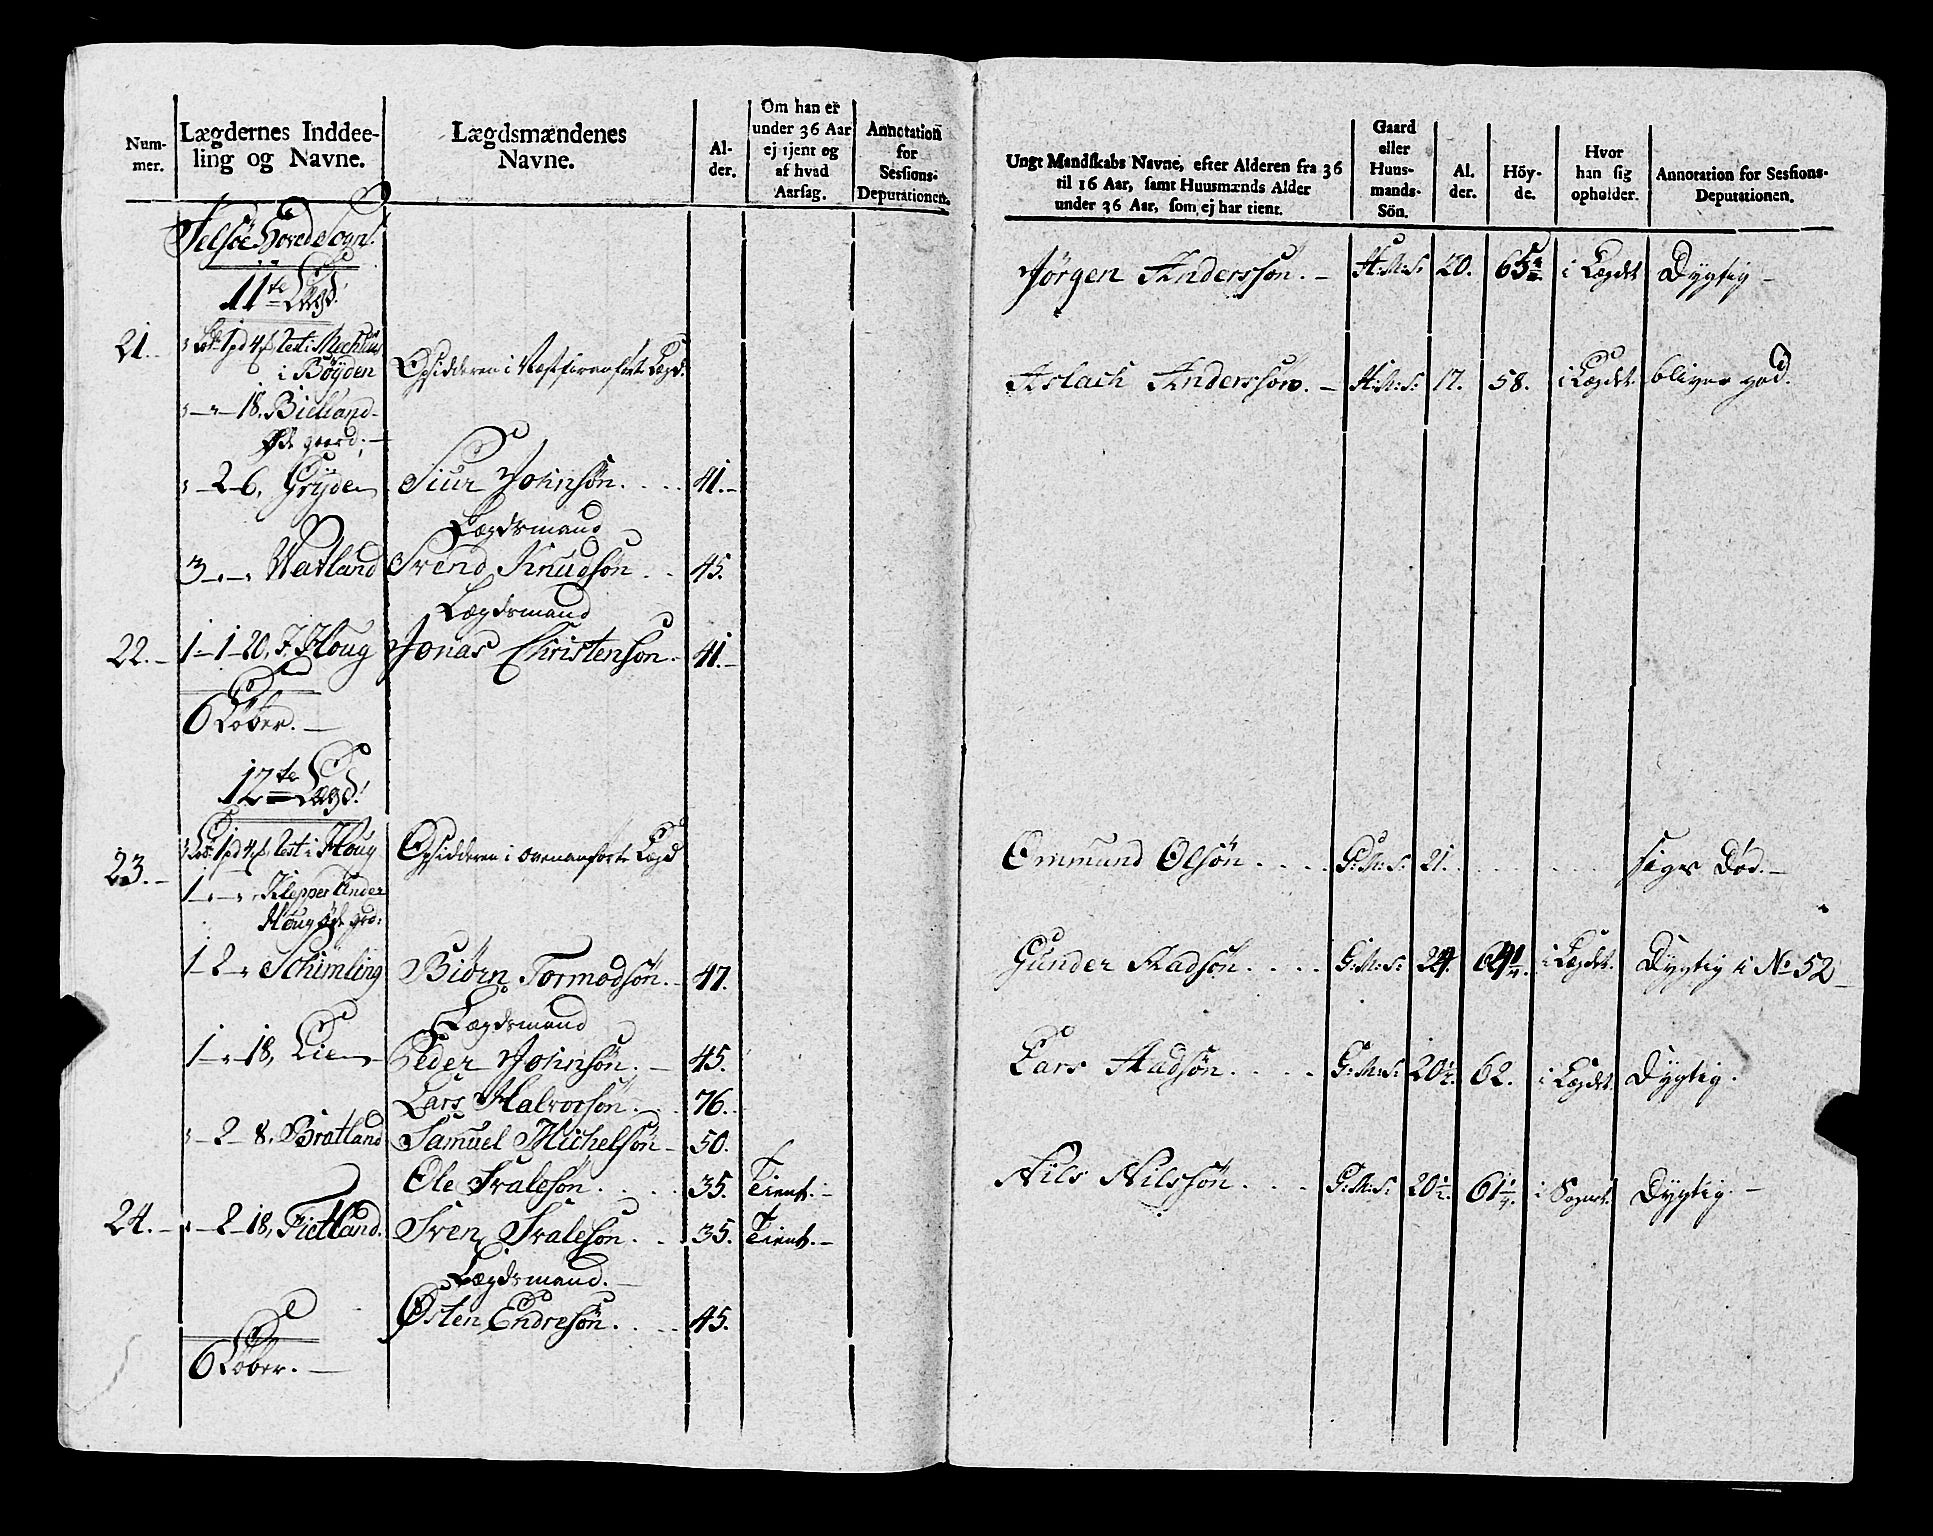 Num-
mer.
Lægdernes Inddee-
ling og Navne.
Lægdsmændenes
Navne.
Al-
der.
Om han er
under 36 Aar
ej tjent og
af hvad
Aarsag.
Annotation
for
Sessions-
Deputationen.
Jelsöe Hoved Sogn.
11te Lægd.
21. Lest i
i Böyden Opsidderen i Næst foranførte Lægd.
18. Bielland
Øde gaard.
2 6. Gryden Siur Johnsön. 41.
Lægdsmand
3 Vatland Svend Knudsön 45.
Lægdsmand
22. 1 1 20. Houg Jonas Christensön. 41.
6 Løber.
12te Lægd.
23. Løb 1 pd 4 Lest i Houg Opsidderen i ovenanførte Lægd
1 Klepper under
Houg øde grd:
1 2 Schimling Biørn Tormodsön. 47.
Lægdsmand
1 18. Lien Peder Johnsön. 45.
Lars Halvorsön. 76.
2 8. Bratland Samuel Michelsön 50.
Ole Svalesön. 35. Tient.
24. 2 18. Fietland. Sven Svalesön. 35. Tient.
Lægdsmand.
Østen Endresön. 45.
6 Løber.
Ungt Mandskabs Navne, efter Alderen fra 36
til 16 Aar, samt Huusmænds Alder
under 36 Aar, som ej har tient.
Gaard
eller
Huus-
mands-
Sön.
Al.
der.
Höy-
de.
Hvor
han sig
opholder.
Annotation for Sessions-
Deputationen.
Jörgen Anderssön. H: M: S: 20. i Lægdet Dygtig
Aslach Anderssön. H: M: S: 17. 58. i Lægdet bliver god.
Ommund Olsön G: M: S: 21. siges Død.
Gunder Aadsön. G: M: S: 24. 64 1/4. i Lægdet. Dygtig i No 52
Lars Aadsön. G: M: S: 20 1/2. 62. i Lægdet Dygtig.
Nils Nilssön. G: M: S: 20 1/2. 61 1/4. i Sognet. Dygtig.